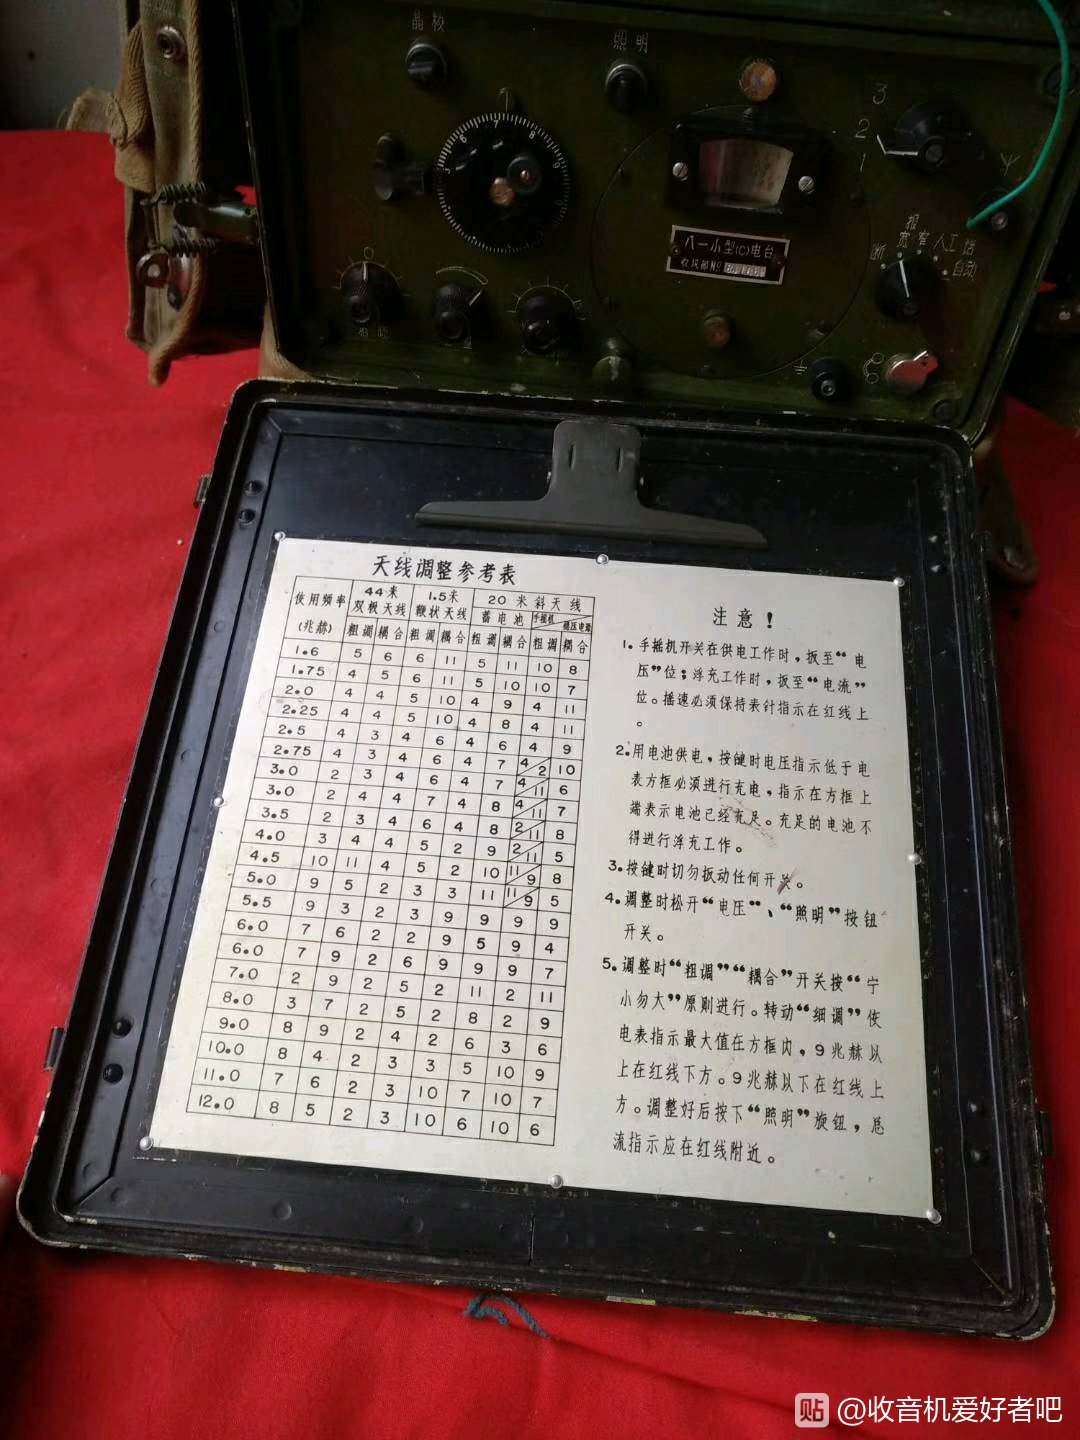 晶校
照明
3
2
1
八一小型(C)电台
收发部 No
报
宽 窄 人工 话
断
自动
天线调整参考表
使用频率
(兆赫)
44米
双极天线
1.5米
鞭状天线
20米斜天线
蓄电池
手摇机
粗调 耦合 粗调 耦合 粗调 耦合 粗调 耦合
1.6 5 6 6 11 5 11 10 8
1.75 4 5 6 11 5 10 10 7
2.0 4 4 5 10 4 9 4 11
2.25 4 4 5 10 4 8 4 11
2.5 4 3 4 6 4 6 4 9
2.75 4 3 4 6 4 7 4/2 10
3.0 2 3 4 6 4 7 4/11 6
3.0 2 4 4 7 4 8 4/11 7
3.5 2 3 4 6 4 8 2/11 8
4.0 3 4 4 5 2 9 2/11 5
4.5 10 11 4 5 2 10 11/9 8
5.0 9 5 2 3 3 11 11/9 5
5.5 9 3 2 3 9 9 9 9
6.0 7 6 2 2 9 5 9 4
6.0 7 9 2 6 9 9 9 7
7.0 2 9 2 5 2 11 2 11
8.0 3 7 2 5 2 8 2 9
9.0 8 9 2 4 2 6 3 6
10.0 8 4 2 3 3 5 10 9
11.0 7 6 2 3 10 7 10 7
12.0 8 5 2 3 10 6 10 6
注意！
1.手摇机开关在供电工作时，扳至“电
压”位；浮充工作时，扳至“电流”
位。摇速必须保持表针指示在红线上
。
2.用电池供电，按键时电压指示低于电
表方框必须进行充电，指示在方框上
端表示电池已经充足。充足的电池不
得进行浮充工作。
3.按键时切勿扳动任何开关。
4.调整时松开“电压”、“照明”按钮
开关。
5.调整时“粗调”“耦合”开关按“宁
小勿大”原则进行。转动“细调”使
电表指示最大值在方框内，9兆赫以
上在红线下方。9兆赫以下在红线上
方。调整好后按下“照明”旋钮，总
流指示应在红线附近。
贴 @收音机爱好者吧